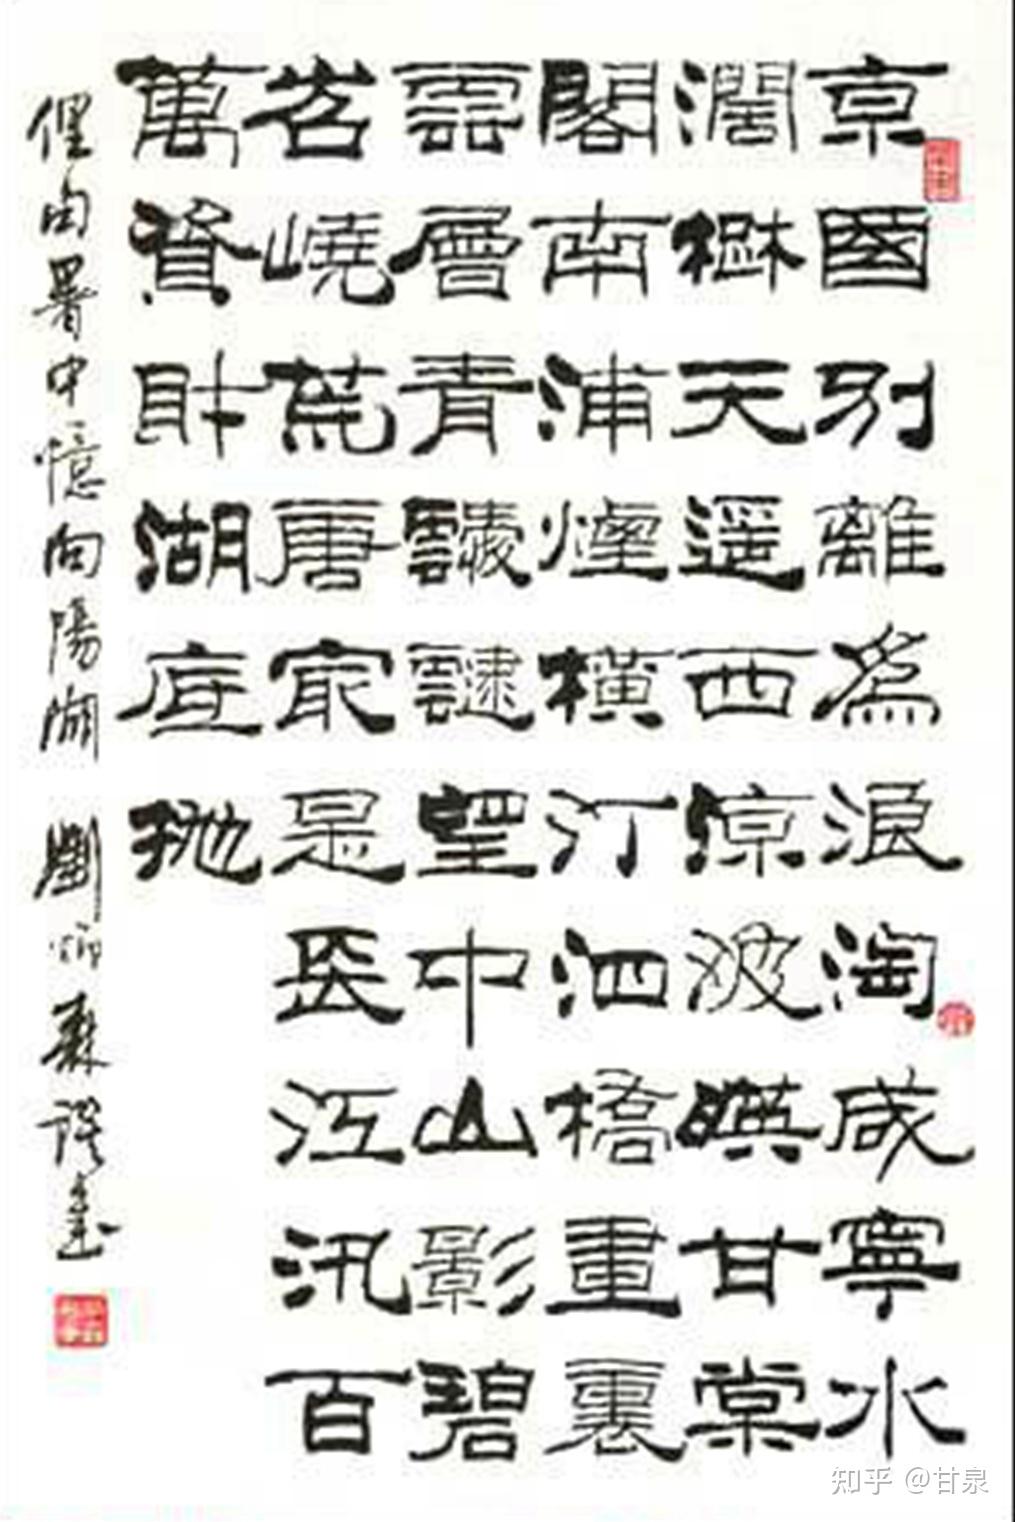 京國別離為浪淘咸寧水
闊樹天遥西涼波映甘棠
閣南浦煙橫汀泗橋畫裏
雲層青靆靆望中山影碧
岧嶢荒唐最是長江汛百
萬資財湖底抛
俚句署中憶向陽湖 劉炳森
知乎 @甘泉